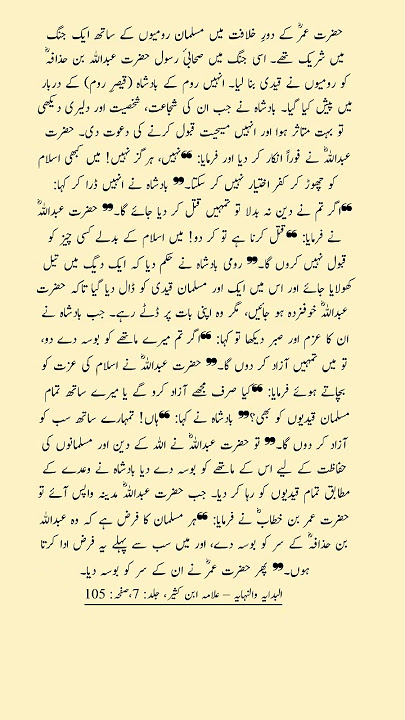 حضرت عمرؓ کے دورِ خلافت میں مسلمان رومیوں کے ساتھ ایک جنگ
میں شریک تھے۔ اسی جنگ میں صحابیٔ رسول حضرت عبداللہ بن حذافہؓ
کو رومیوں نے قیدی بنا لیا۔ انہیں روم کے بادشاہ (قیصرِ روم) کے دربار
میں پیش کیا گیا۔ بادشاہ نے جب ان کی شجاعت، شخصیت اور دلیری دیکھی
تو بہت متاثر ہوا اور انہیں مسیحیت قبول کرنے کی دعوت دی۔ حضرت
عبداللہؓ نے فوراً انکار کر دیا اور فرمایا: ❝نہیں، ہرگز نہیں! میں کبھی اسلام
کو چھوڑ کر کفر اختیار نہیں کر سکتا۔❞ بادشاہ نے انہیں ڈرا کر کہا:
❝اگر تم نے دین نہ بدلا تو تمہیں قتل کر دیا جائے گا۔❞ حضرت عبداللہؓ
نے فرمایا: ❝قتل کرنا ہے تو کر دو! میں اسلام کے بدلے کسی چیز کو
قبول نہیں کروں گا۔❞ رومی بادشاہ نے حکم دیا کہ ایک دیگ میں تیل
کھولایا جائے اور اس میں ایک اور مسلمان قیدی کو ڈال دیا گیا تاکہ حضرت
عبداللہؓ خوفزدہ ہو جائیں، مگر وہ اپنی بات پر ڈٹے رہے۔ جب بادشاہ نے
ان کا عزم اور صبر دیکھا تو کہا: ❝اگر تم میرے ماتھے کو بوسہ دے دو،
تو میں تمہیں آزاد کر دوں گا۔❞ حضرت عبداللہؓ نے اسلام کی عزت کو
بچاتے ہوئے فرمایا: ❝کیا صرف مجھے آزاد کرو گے یا میرے ساتھ تمام
مسلمان قیدیوں کو بھی؟❞ بادشاہ نے کہا: ❝ہاں! تمہارے ساتھ سب کو
آزاد کر دوں گا۔❞ تو حضرت عبداللہؓ نے اللہ کے دین اور مسلمانوں کی
حفاظت کے لیے اس کے ماتھے کو بوسہ دے دیا بادشاہ نے وعدے کے
مطابق تمام قیدیوں کو رہا کر دیا۔ جب حضرت عبداللہؓ مدینہ واپس آئے تو
حضرت عمر بن خطابؓ نے فرمایا: ❝ہر مسلمان کا فرض ہے کہ وہ عبداللہ
بن حذافہؓ کے سر کو بوسہ دے، اور میں سب سے پہلے یہ فرض ادا کرتا
ہوں۔❞ پھر حضرت عمرؓ نے ان کے سر کو بوسہ دیا۔
البدایہ والنہایہ – علامہ ابن کثیر، جلد: 7،صفحہ: 105